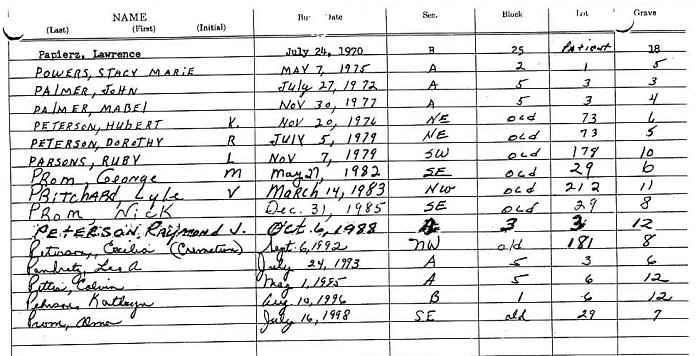 NAME Bu Date Sec. Block Lot Grave
(Last) (First) (Initial)
Papierz, Lawrence July 24, 1970 B 25 Patient 18
POWERS, STACY MARIE MAY 7, 1975 A 2 1 5
PALMER, JOHN July 27, 1972 A 5 3 3
PALMER, MABEL NOV 30, 1977 A 5 3 4
PETERSON, HUBERT K. NOV 20, 1976 NE old 73 6
PETERSON, DOROTHY R JULY 5, 1979 NE old 73 5
PARSONS, RUBY L NOV 7, 1979 SW old 178 10
PROM George M May 27, 1982 SE old 29 6
PRITCHARD, Lyle V March 14, 1983 NW old 212 11
PROM, NICK Dec. 31, 1985 SE old 29 8
PETERSON, RAYMOND J. Oct. 6, 1988 3 3 12
Peterson, Cecilia (Cremation) Sept. 6, 1992 NW old 181 8
Leo A July 24, 1993 A 5 3 6
Calvin May 1, 1995 A 5 6 12
Kathryn Aug 10, 1996 B 1 6 12
Prom, Alma July 16, 1998 SE old 29 7